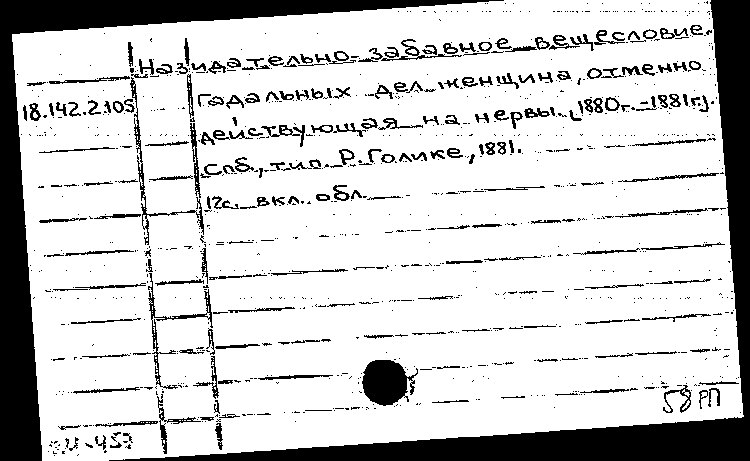 Назидательно-забавное вещесловие.
18.142.2.105
Гадальных дел женщина, отменно
действующая на нервы. [1880г.-1881г].
Спб., тип. Р. Голике, 1881.
12с. вкл. обл.
58 РП